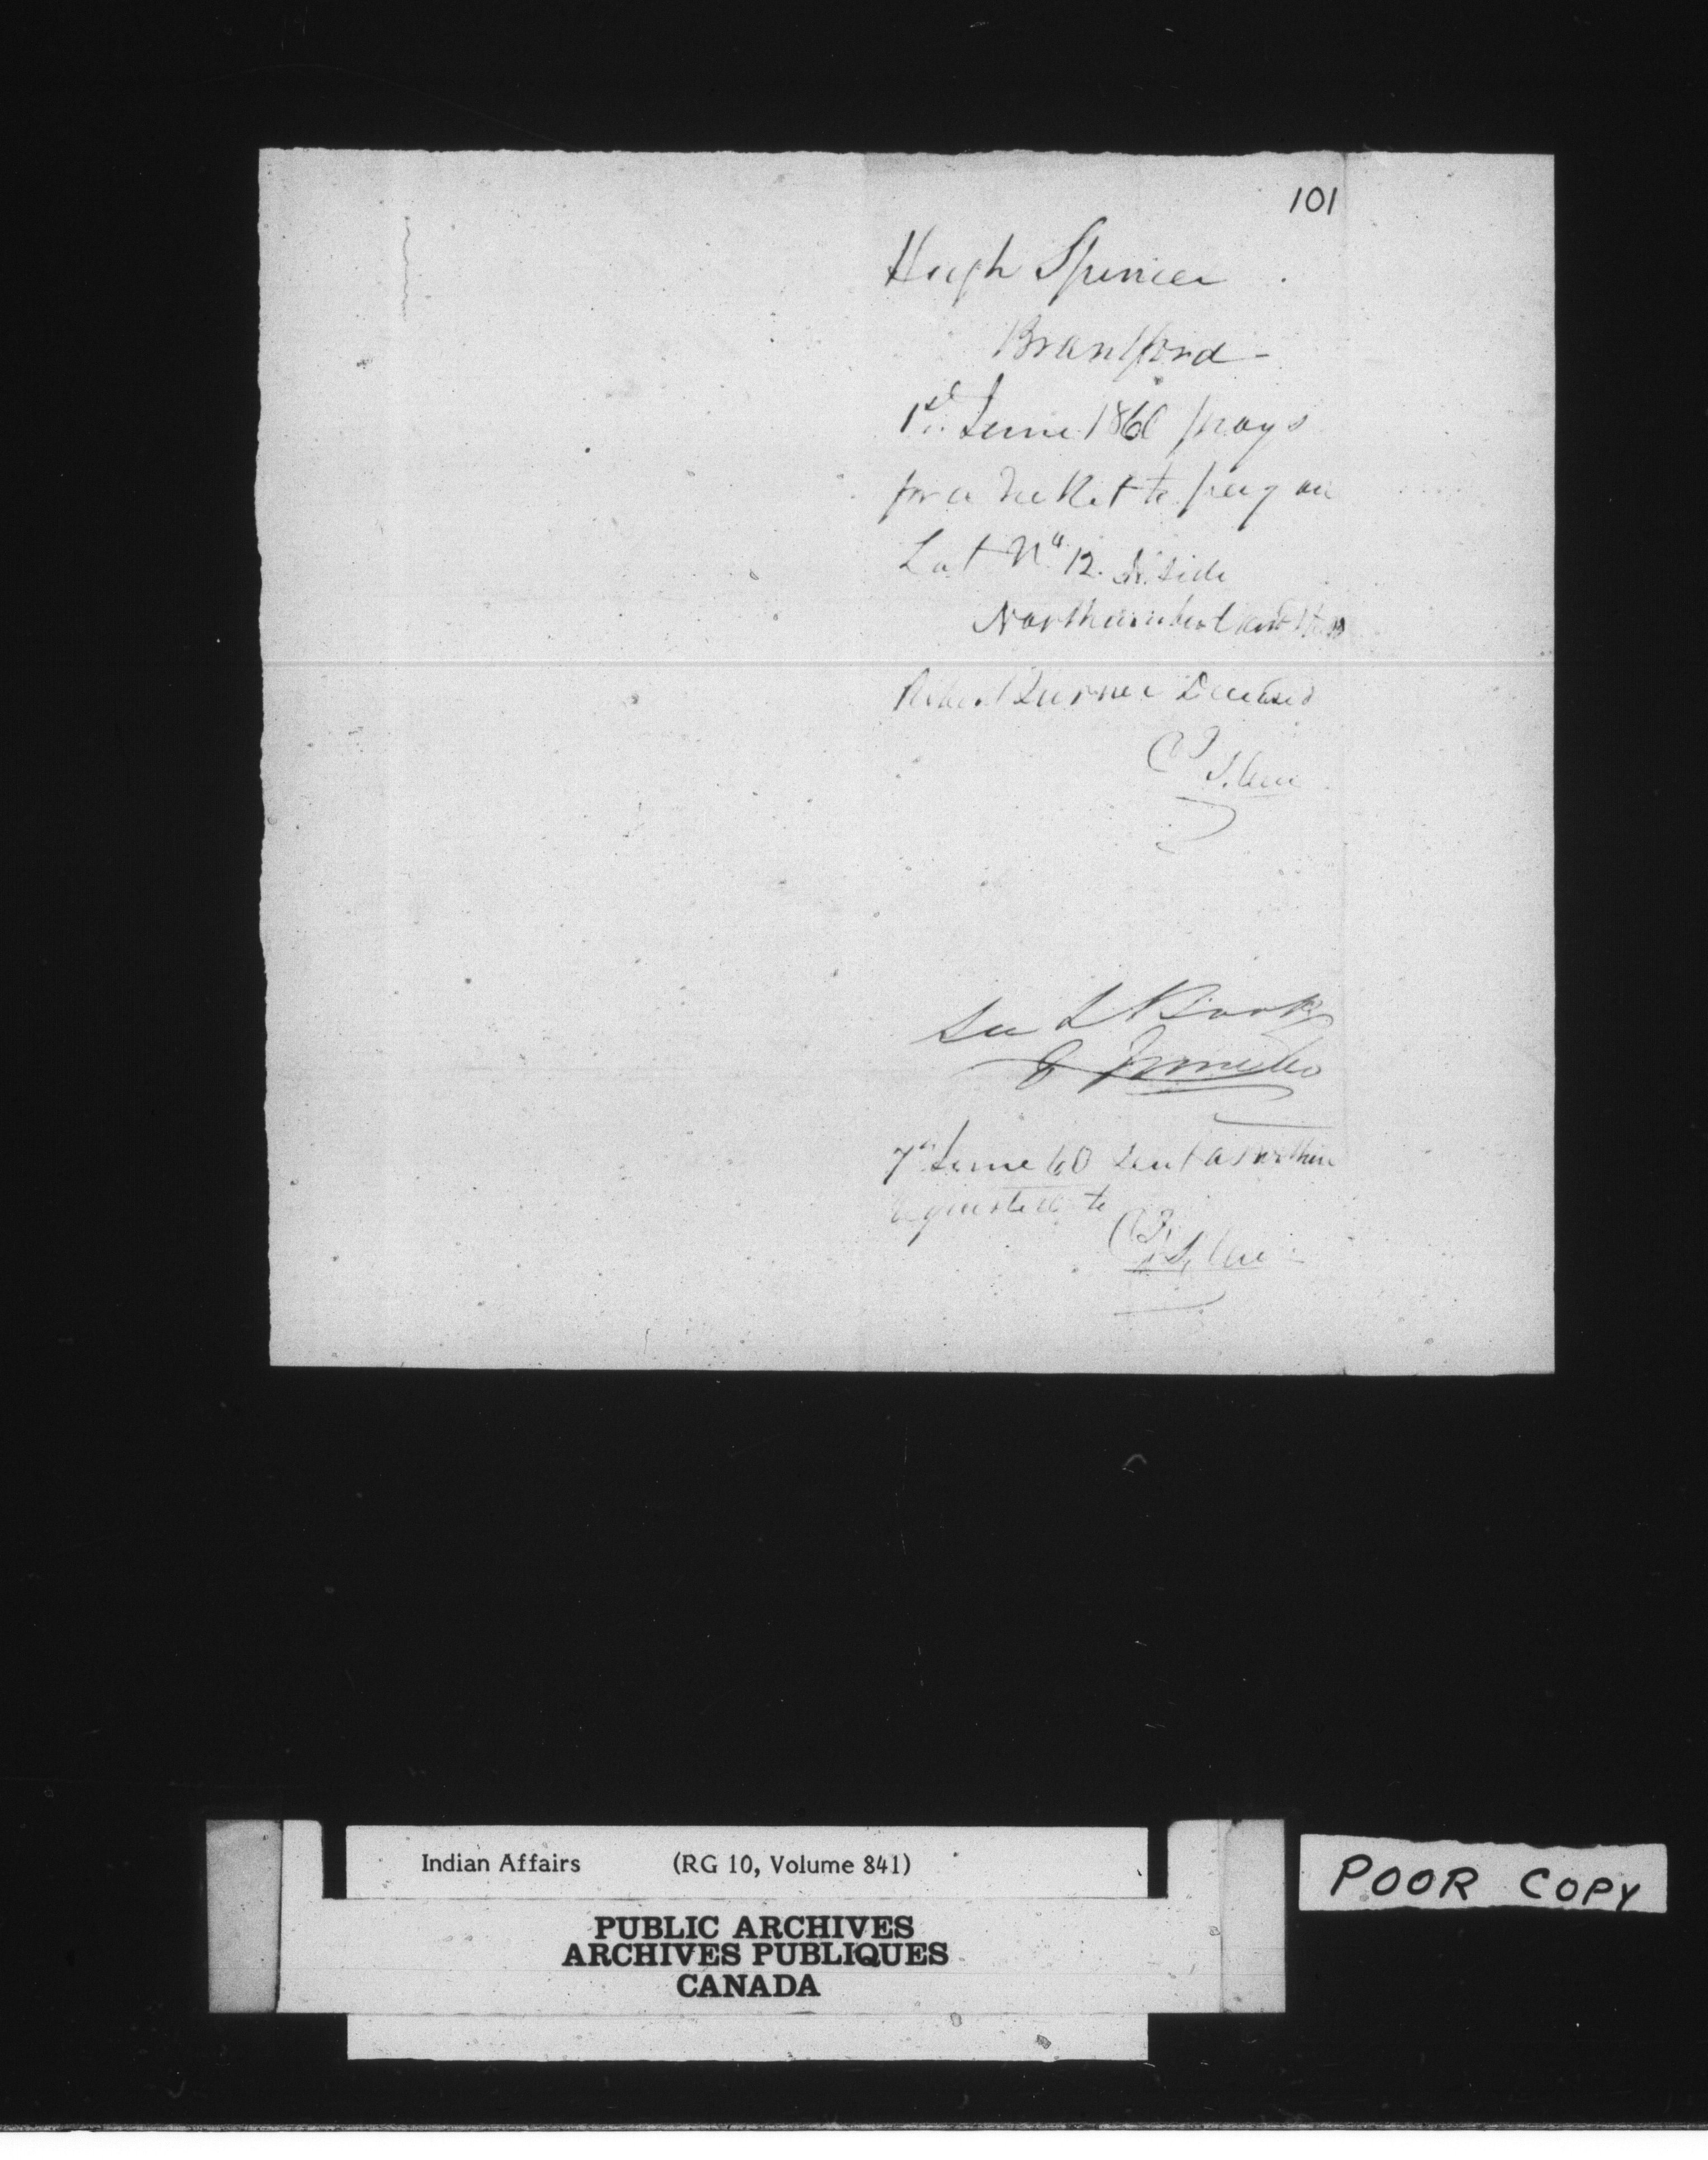 101
Hugh Spencer
Brantford -
1st June 1860 prays
for a ticket to pay on
Lot No 12. N. side
Northumberland St
Robert Turner Deceased
See L Book
7th June 60 sent as within
requested to
Indian Affairs (RG 10, Volume 841)
PUBLIC ARCHIVES
ARCHIVES PUBLIQUES
CANADA
POOR COPY